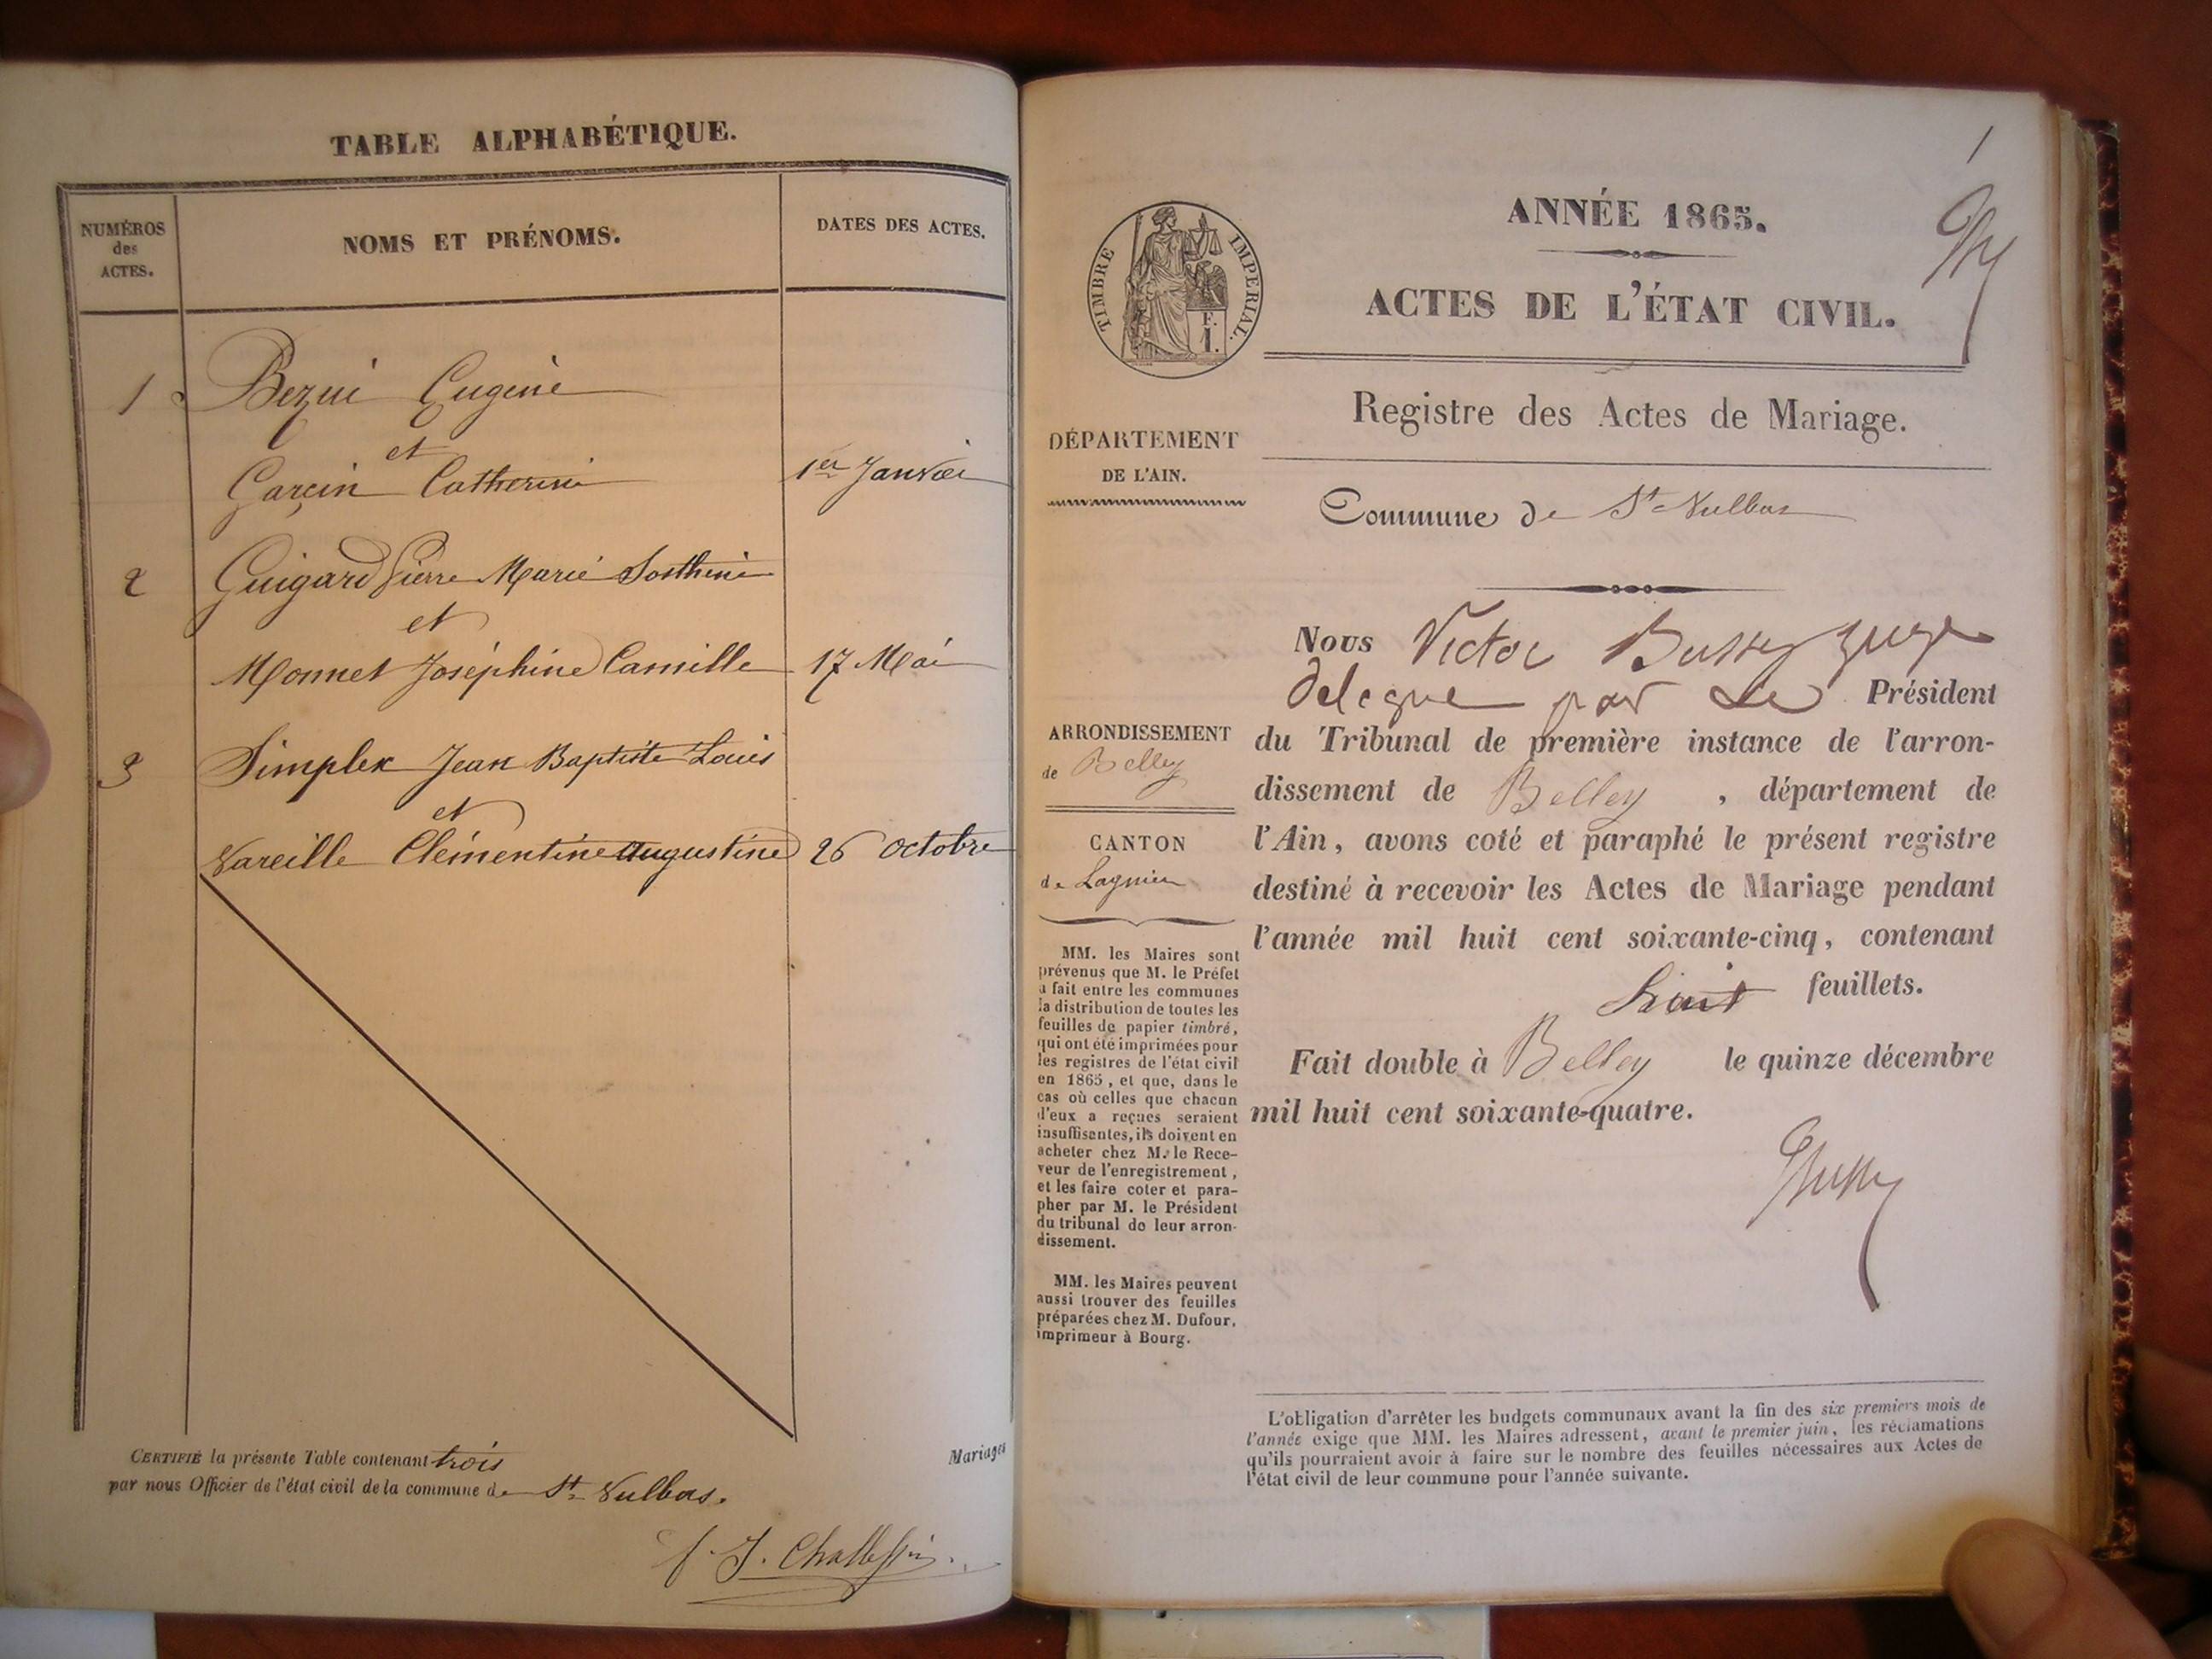 TABLE ALPHABÉTIQUE.
NUMÉROS
des
ACTES.
NOMS ET PRÉNOMS.
DATES DES ACTES.
1
et
Garcin Catherine
1er Janvier
2
Guigard Pierre Marie Sosthène
et
Monnet Joséphine Camille
17 Mai
3
Simplex Jean Baptiste Louis
et
Vareille Clémentine augustine
26 octobre
CERTIFIÉ la présente Table contenant trois
Mariages
par nous Officier de l'état civil de la commune de St Vulbas.
1
ANNÉE 1865.
ACTES DE L'ÉTAT CIVIL.
TIMBRE IMPERIAL.
F.
1.
Registre des Actes de Mariage.
DÉPARTEMENT
DE L'AIN.
Commune de St Vulbas
ARRONDISSEMENT
de Belley
CANTON
de Lagnieu
MM. les Maires sont
prévenus que M. le Préfet
a fait entre les communes
la distribution de toutes les
feuilles de papier timbré,
qui ont été imprimées pour
les registres de l'état civil
en 1865, et que, dans le
cas où celles que chacun
d'eux a reçues seraient
insuffisantes, ils doivent en
acheter chez M. le Rece-
veur de l'enregistrement,
et les faire coter et para-
pher par M. le Président
du tribunal de leur arron-
dissement.
MM. les Maires peuvent
aussi trouver des feuilles
préparées chez M. Dufour,
imprimeur à Bourg.
Nous Victor Bussy juge
délégué par Le Président
du Tribunal de première instance de l'arron-
dissement de Belley, département de
l'Ain, avons coté et paraphé le présent registre
destiné à recevoir les Actes de Mariage pendant
l'année mil huit cent soixante-cinq, contenant
feuillets.
Fait double à Belley le quinze décembre
mil huit cent soixante-quatre.
L'obligation d'arrêter les budgets communaux avant la fin des six premiers mois de
l'année exige que MM. les Maires adressent, avant le premier juin, les réclamations
qu'ils pourraient avoir à faire sur le nombre des feuilles nécessaires aux Actes de
l'état civil de leur commune pour l'année suivante.